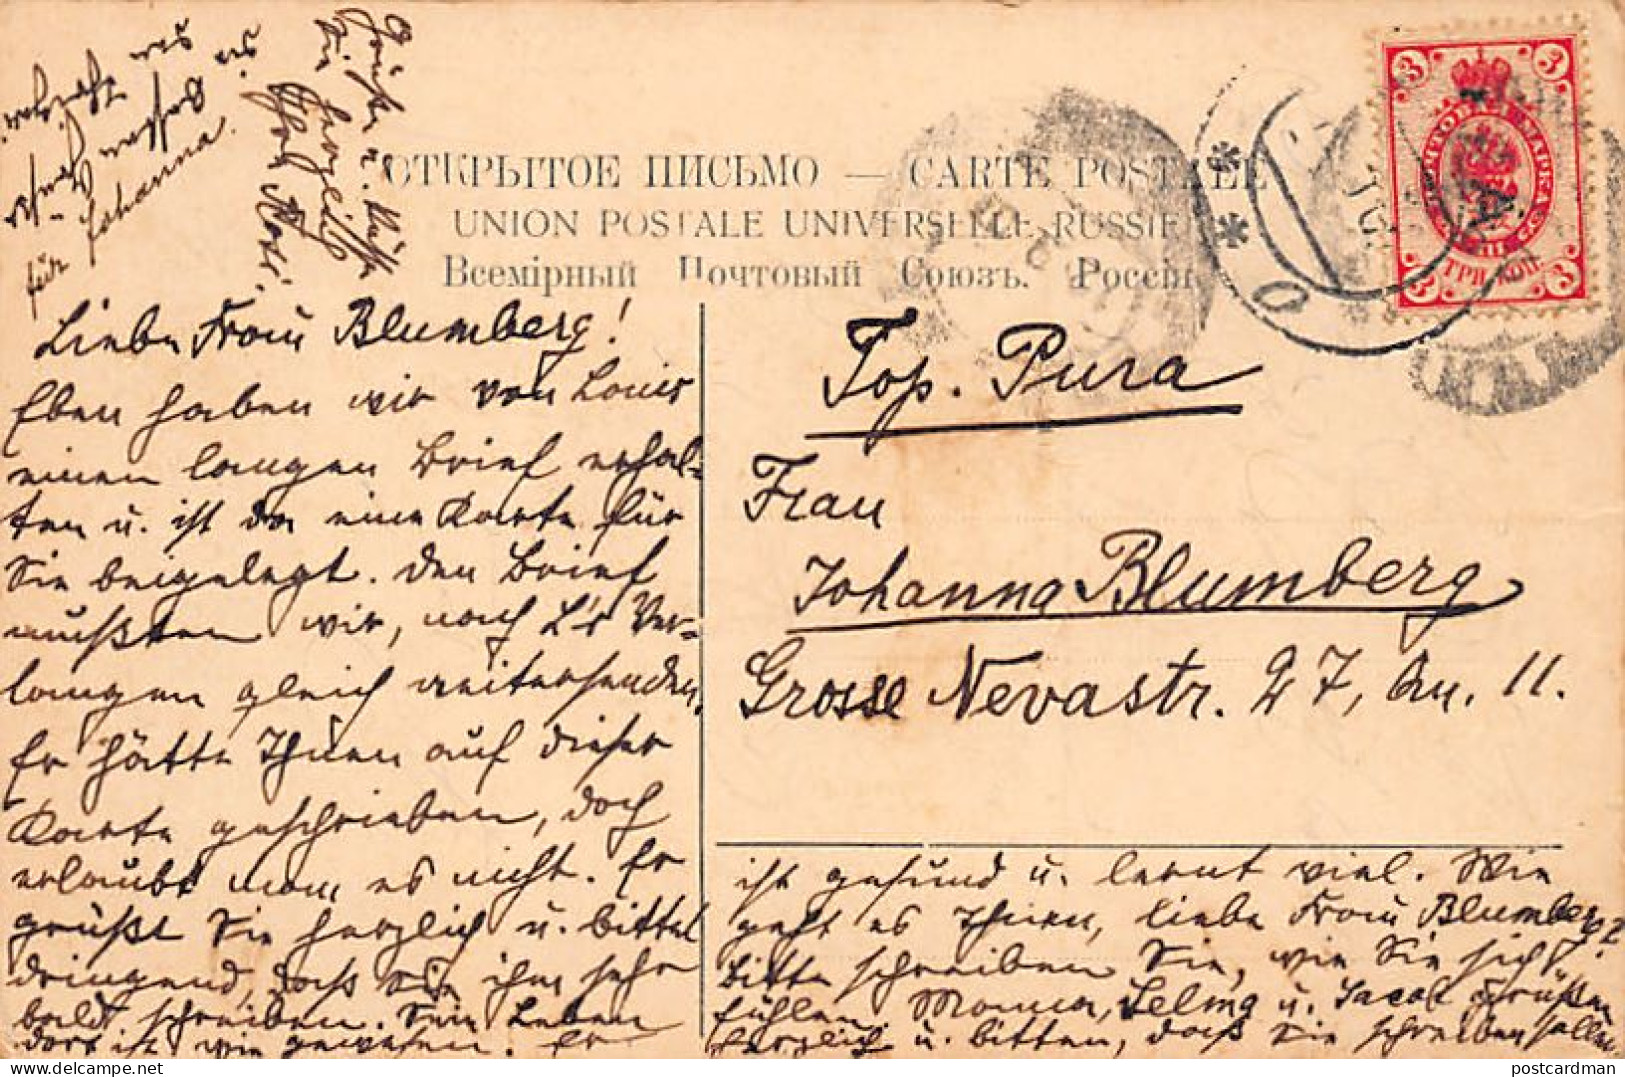 ОТКРЫТОЕ ПИСЬМО — CARTE POSTALE
UNION POSTALE UNIVERSELLE RUSSIE
Всемірный Почтовый Союзъ. Россія
3 3
ПОЧТОВАЯ МАРКА
ТРИ КОП.
3 3
Top. Pura
Frau
Johanna Blumberg
Grosse Nevastr. 27, Qu. 11.
Liebe Frau Blumberg!
Eben haben wir von Louis
einen langen Brief erhal-
ten u. ist da eine Karte für
Sie beigelegt. Den Brief
mußten wir, nach L's Ver-
langen gleich weitersenden.
Er hätte Ihnen auf dieser
Karte geschrieben, doch
erlaubt man es nicht. Er
grüßt Sie herzlich u. bittet
dringend, daß Sie ihm sehr
bald schreiben. Sein Leben
dort ist wie gewesen. Er
ist gesund u. lernt viel. Wie
geht es Ihnen, liebe Frau Blumberg?
Bitte schreiben Sie, wie Sie sich
fühlen. Mama, Selma u. Jacob grüßen
herzlich u. bitten, daß Sie schreiben sollen.
Grüße u. Küsse
Sie herzlich
Ihre Rosi.
für Johanna.
postcardman